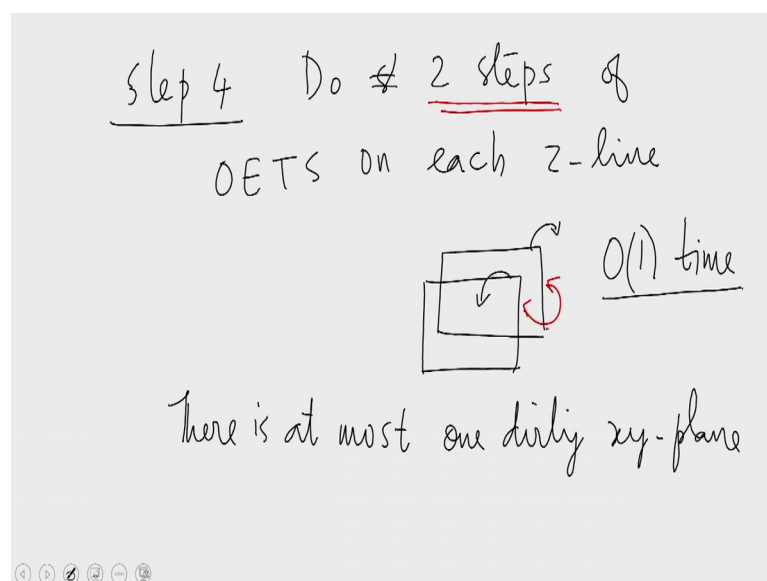 Step 4 Do 2 steps of
OETS on each z-line
O(1) time
There is at most one dirty xy-plane